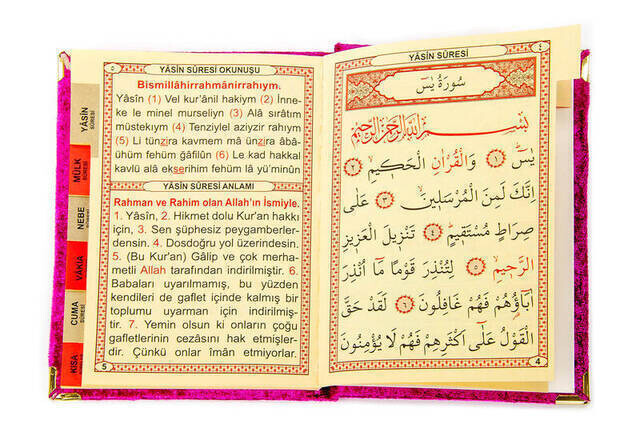 YÂSİN SÛRESİ
سُورَةُ يٰسٓ
بِسْمِ اللّٰهِ الرَّحْمٰنِ الرَّحِيمِ
يٰسٓ ﴿١﴾ وَالْقُرْاٰنِ الْحَكِيمِ ﴿٢﴾
اِنَّكَ لَمِنَ الْمُرْسَلِينَ ﴿٣﴾ عَلٰى
صِرَاطٍ مُسْتَقِيمٍ ﴿٤﴾ تَنْزِيلَ الْعَزِيزِ
الرَّحِيمِ ﴿٥﴾ لِتُنْذِرَ قَوْمًا مَٓا اُنْذِرَ
اٰبَٓاؤُ۬هُمْ فَهُمْ غَافِلُونَ ﴿٦﴾ لَقَدْ حَقَّ
الْقَوْلُ عَلٰٓى اَكْثَرِهِمْ فَهُمْ لَا يُؤْمِنُونَ
4
٤
YÂSİN SÛRESİ OKUNUŞU
٥
Bismillâhirrahmânirrahıym.
Yâsîn (1) Vel kur'ânil hakiym (2) İnne-
ke le minel murseliyn (3) Alâ sırâtım
müstekıym (4) Tenziylel aziyzir rahıym
(5) Li tünzira kavmem mâ ünzira âbâ-
ühüm fehüm ğâfilûn (6) Le kad hakkal
kavlü alâ ekserihim fehüm lâ yü'minûn
YÂSİN SÛRESİ ANLAMI
Rahman ve Rahim olan Allah'ın İsmiyle.
1. Yâsîn, 2. Hikmet dolu Kur'an hakkı
için, 3. Sen şüphesiz peygamberler-
densin. 4. Dosdoğru yol üzerindesin.
5. (Bu Kur'an) Gâlip ve çok merha-
metli Allah tarafından indirilmiştir. 6.
Babaları uyarılmamış, bu yüzden
kendileri de gaflet içinde kalmış bir
toplumu uyarman için indirilmiş-
tir. 7. Yemin olsun ki onların çoğu
gafletlerinin cezasını hak etmişler-
dir. Çünkü onlar îmân etmiyorlar.
5
YÂSİN
SÛRESİ
MÜLK
SÛRESİ
NEBE
SÛRESİ
VAKIA
CUMA
SÛRESİ
KISA